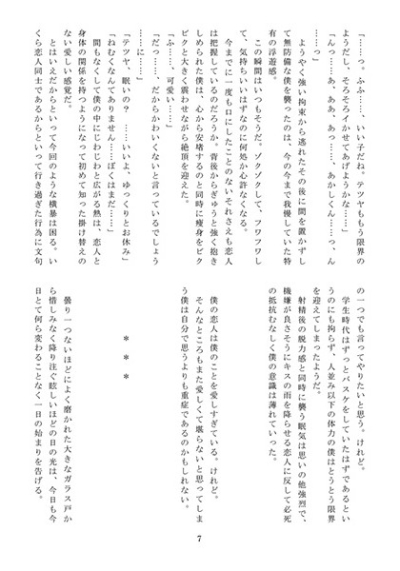 「……っ。ふふ……、いい子だね。テツヤももう限界の
ようだし、そろそろイかせてあげようかな……」
「んっ……あ、あぁ……、あかしくん……っ、ん
……っ」
ようやく強い拘束から逃れたその後に間を置かずし
て無防備な僕を襲ったのは、今の今まで我慢していた特
有の浮遊感。
この瞬間はいつもそうだ。ゾクゾクして、フワフワし
て、気持ちいいはずなのに何処か心許なくなる。
今までに一度も口にしたことのないそれさえも恋人
は把握しているのだろうか。背後からぎゅうと強く抱き
しめられた僕は、心から安堵するのと同時に痩身をビク
ビクと大きく震わせながら絶頂を迎えた。
「ふ……、可愛い……」
「だっ……、だからかわいくないと言っているでしょう
……に……」
「テツヤ、眠いの？　……いいよ、ゆっくりとお休み」
「ねむくなんてありません……ぼくはまだ……」
間もなくして僕の中にじわじわと広がる熱は、恋人と
身体の関係を持つようになって初めて知った掛け替えの
ない愛しい感覚だ。
とはいえだからといって今回のような横暴は困る。い
くら恋人同士であるからといって行き過ぎた行為に文句
の一つでも言ってやりたいと思う。けれど。
学生時代はずっとバスケをしていたはずであるとい
うのにも拘らず、人並み以下の体力の僕はとうとう限界
を迎えてしまったようだ。
射精後の脱力感と同時に襲う眠気は思いの他強烈で、
機嫌が良さそうにキスの雨を降らせる恋人に反して必死
の抵抗むなしく僕の意識は薄れていった。
僕の恋人は僕のことを愛しすぎている。けれど。
そんなところもまた愛しくて堪らないと思ってしま
う僕は自分で思うよりも重症であるのかもしれない。
＊　＊　＊
曇り一つないほどによく磨かれた大きなガラス戸か
ら惜しみなく降り注ぐ眩しいほどの日の光は、今日も今
日とて何ら変わることなく一日の始まりを告げる。
7